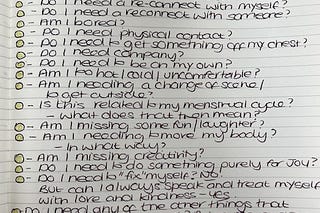 - Do I need a re-connect with myself?
- Do I need a reconnect with someone?
- Am I bored?
- Do I need physical contact?
- Do I need to get something off my chest?
- Do I need company?
- Do I need to be on my own?
- Am I too hot/cold/uncomfortable?
- Am I needing a change of scene/
to get outside?
- Is this related to my menstrual cycle?
- what does that then mean?
- Am I missing some fun/laughter?
- Am I needing to move my body?
- In what way?
- Am I missing creativity?
- Do I need to do something purely for joy?
- Do I need to "fix" myself? No.
But can I always speak and treat myself
with love and kindness - yes.
- Do I need any of the other things that